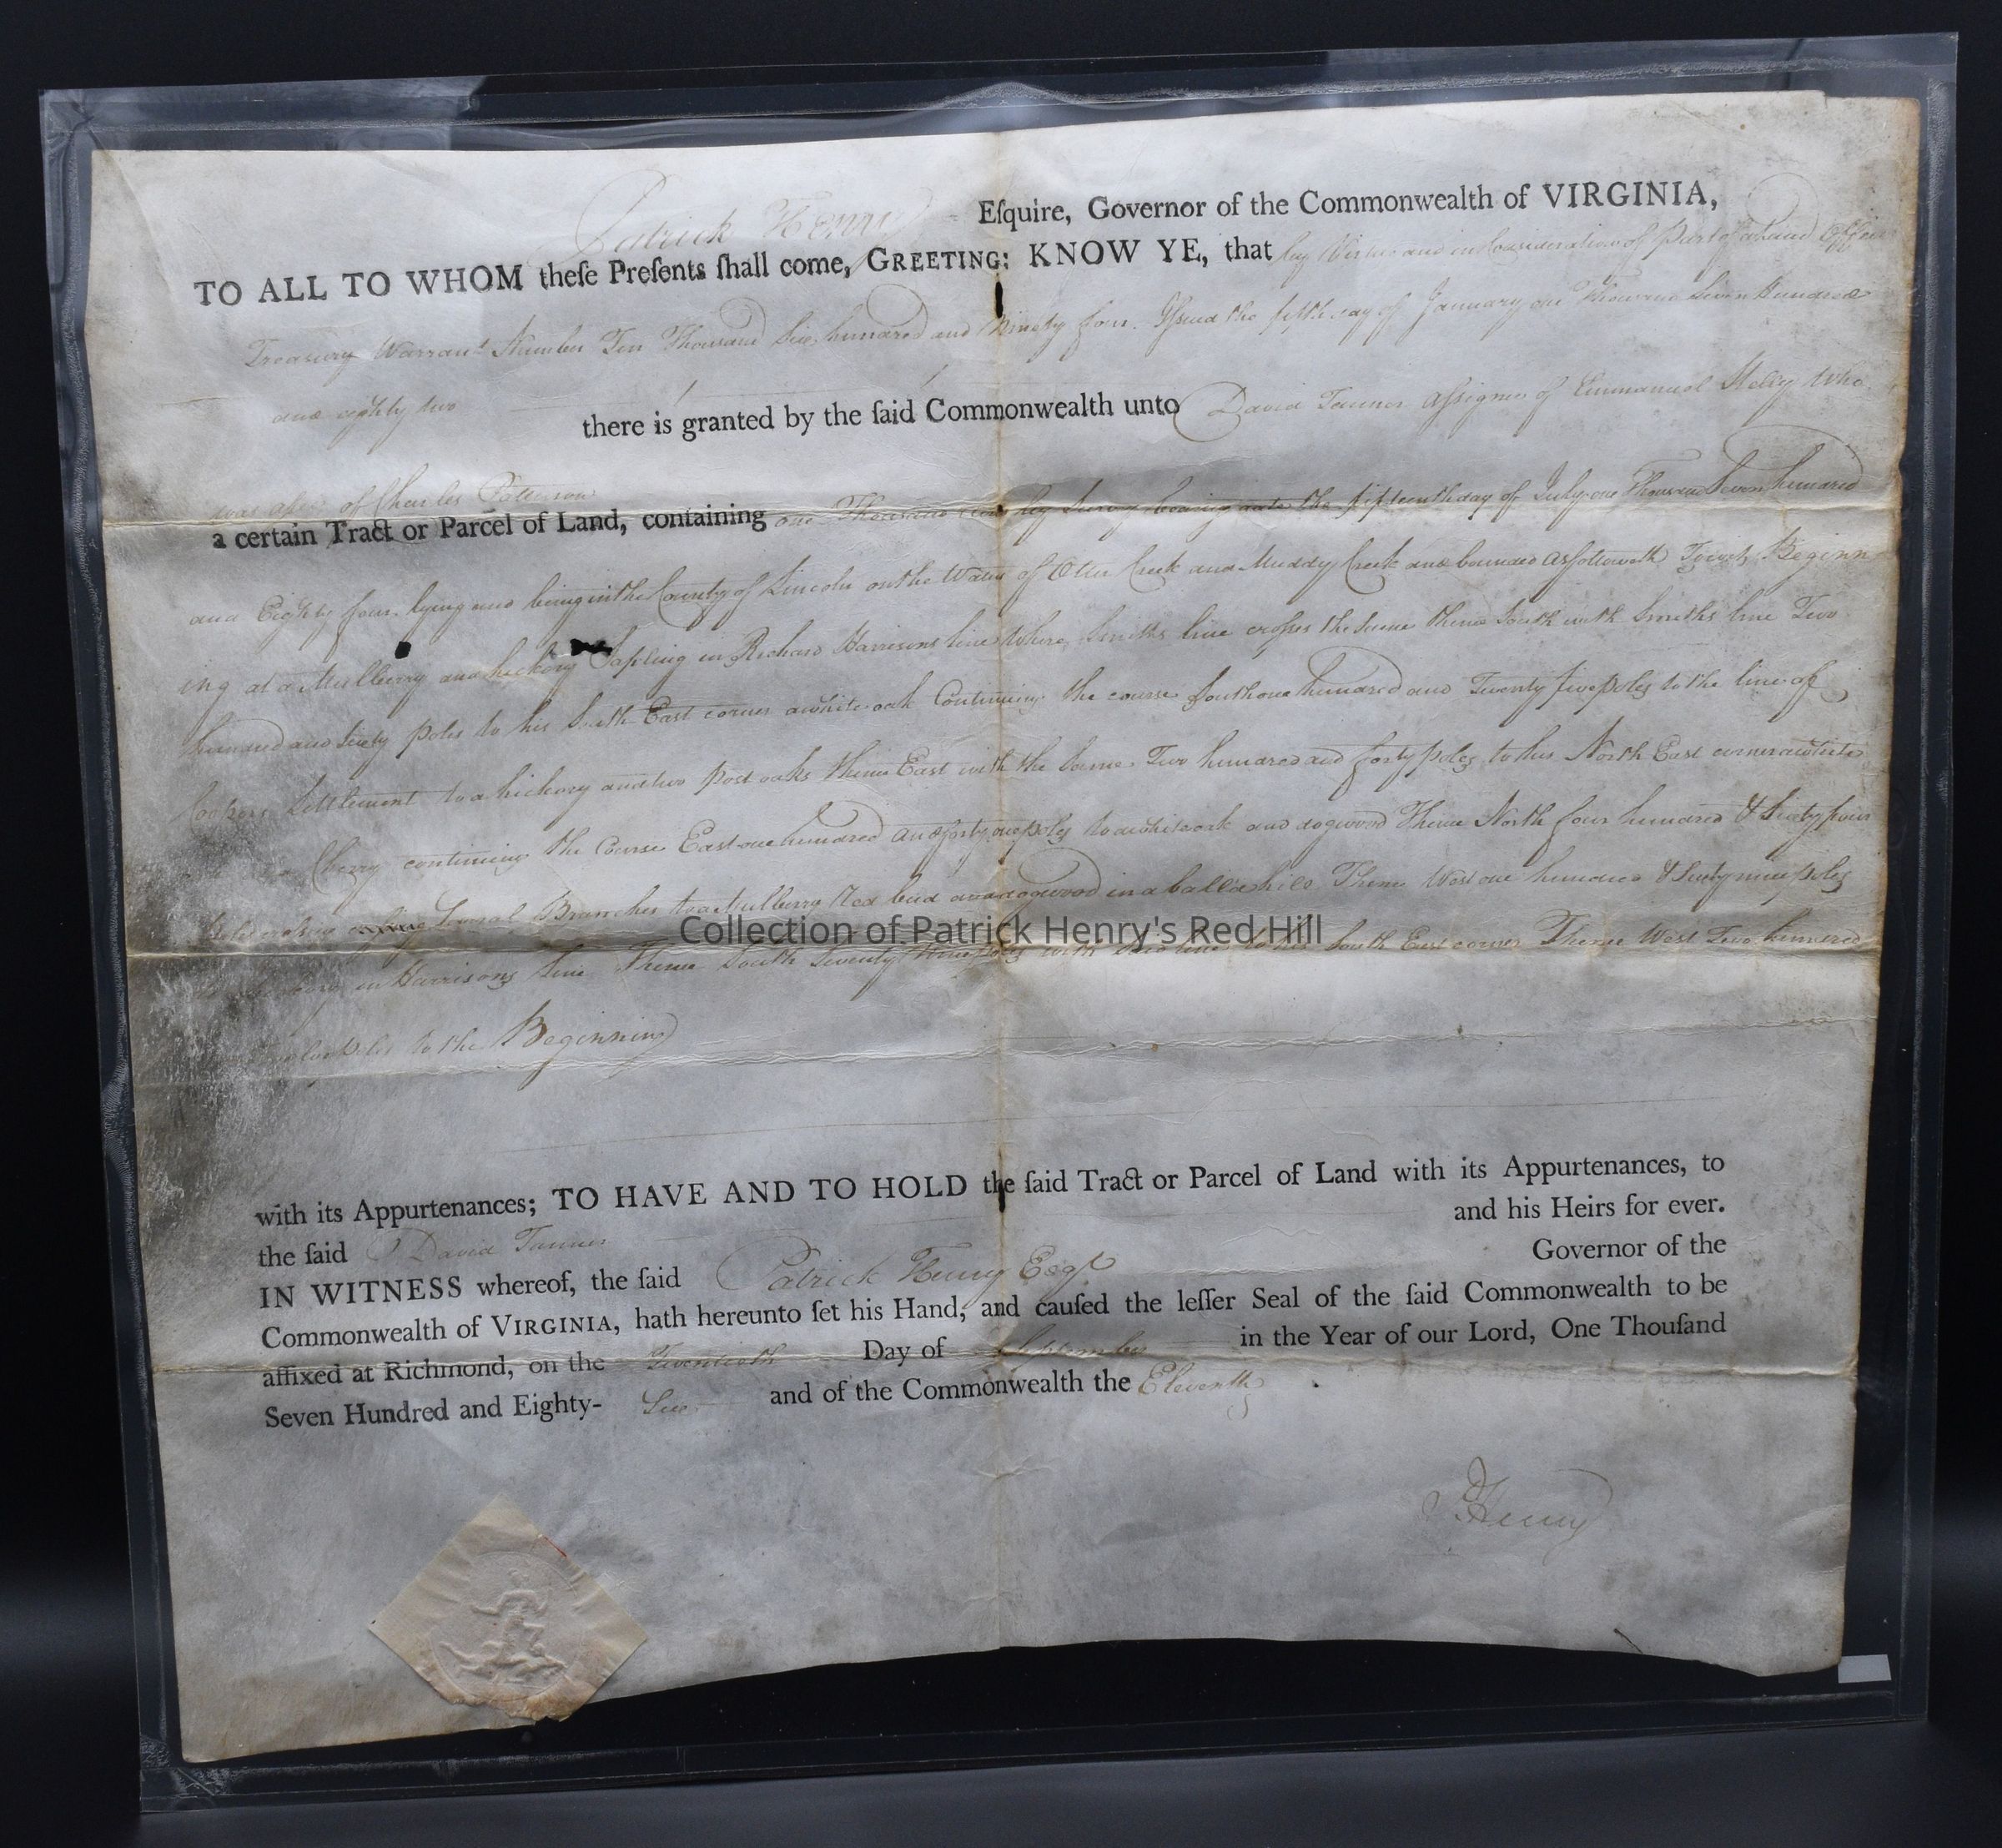 Patrick Henry Eſquire, Governor of the Commonwealth of VIRGINIA,
TO ALL TO WHOM theſe Preſents ſhall come, GREETING: KNOW YE, that by Virtue and in Consideration of Part of a Land Office
Treasury Warrant Number Ten Thousand Six hundred and Ninety four Issued the fifth day of January one Thousand Seven Hundred
and eighty two there is granted by the ſaid Commonwealth unto David Tanner assignee of Emmanuel Kelly who
was assee of Charles Patterson
a certain Tract or Parcel of Land, containing one Thousand acres by Survey bearing date the fifteenth day of July one Thousand Seven hundred
and Eighty four lying and being in the County of Lincoln on the Waters of Otter Creek and Muddy Creek and bounded as followeth Towit, Beginn
ing at a Mulberry and hickory Sapling in Richard Harrisons line where Smiths line crosses the same thence South with Smiths line Two
hundred and Sixty poles to his South East corner a white oak Continuing the course South one hundred and Twenty five poles to the line of
Coopers Settlement to a hickory and two post oaks thence East with the same Two hundred and forty poles to his North East corner a white
Cherry continuing the Course East one hundred and forty one poles to a white oak and dogwood Thence North four hundred & Sixty four
poles crossing Several Branches to a Mulberry Red bud and dogwood in a hill Thence West one hundred & Sixty nine poles
in Harrisons line Thence South Seventy nine poles with said line to his South East corner Thence West Two hundred
poles to the Beginning
Collection of Patrick Henry's Red Hill
with its Appurtenances; TO HAVE AND TO HOLD the ſaid Tract or Parcel of Land with its Appurtenances, to
the ſaid David Tanner and his Heirs for ever.
IN WITNESS whereof, the ſaid Patrick Henry Esqr Governor of the
Commonwealth of VIRGINIA, hath hereunto ſet his Hand, and cauſed the leſſer Seal of the ſaid Commonwealth to be
affixed at Richmond, on the Twentieth Day of September in the Year of our Lord, One Thouſand
Seven Hundred and Eighty- Six and of the Commonwealth the Eleventh
P Henry